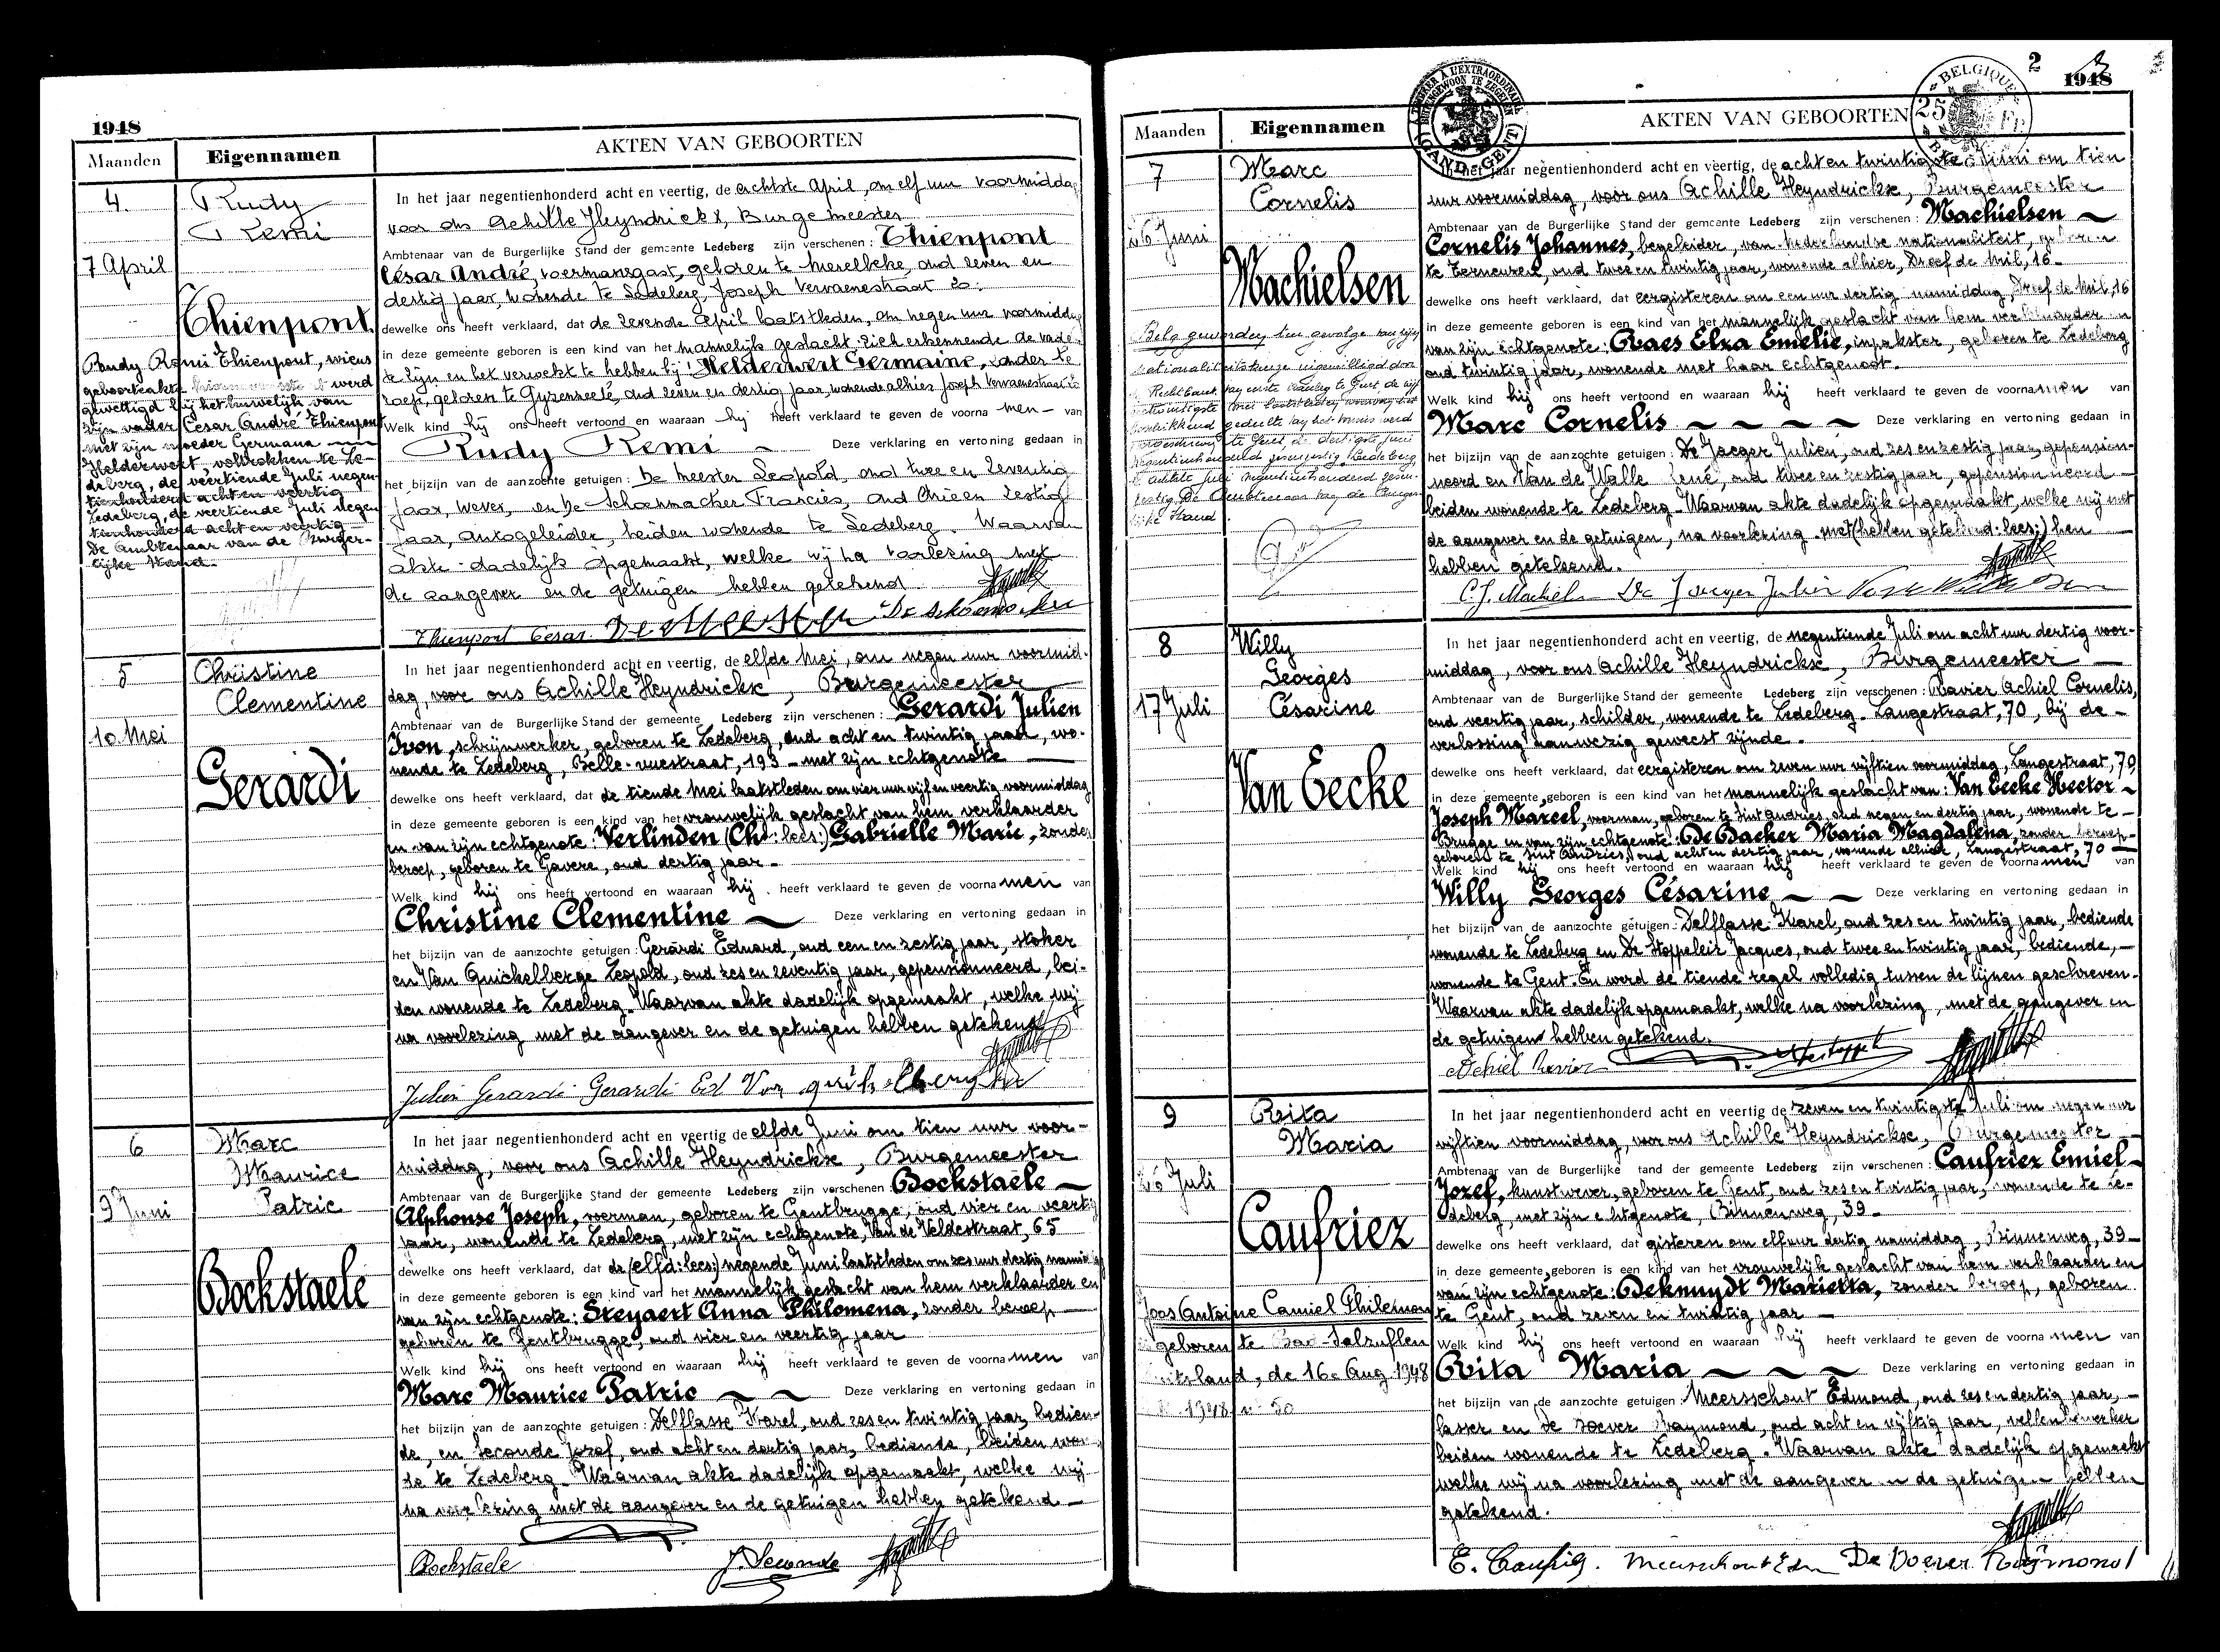 1948
Maanden
Eigennamen
AKTEN VAN GEBOORTEN
4.
Rudy
Remi
7 April
Thienpont.
Rudy Remi Thienpont, wiens
geboorteakte werd
gewettigd bij het huwelijk van
zijn vader César André Thienpont
met zijn moeder Germana
Helderwert, voltrokken te Le-
deberg, de veertiende Juli negen-
tienhonderd acht en veertig
Ledeberg, de veertiende Juli negen
tienhonderd acht en veertig
De Ambtenaar van de Burger-
lijke Stand.
In het jaar negentienhonderd acht en veertig, de achtste April, om elf uur voormiddag
voor ons Achille Heyndrickx, Burgemeester
Ambtenaar van de Burgerlijke Stand der gemeente Ledeberg zijn verschenen: Thienpont
César André, voermansgast, geboren te Merelbeke, oud zeven en
dertig jaar, wonende te Ledeberg, Joseph Vervaenestraat
dewelke ons heeft verklaard, dat de zevende April laatstleden, om negen uur voormiddag
in deze gemeente geboren is een kind van het mannelijk geslacht zich erkennende de vader
te zijn en het verwekt te hebben bij: Helderwert Germaine, zonder be
roep, geboren te Gyzenzeele, oud zeven en dertig jaar, wonende alhier Joseph Vervaenestraat
Welk kind hij ons heeft vertoond en waaraan hij heeft verklaard te geven de voorna men van
Rudy Remi Deze verklaring en vertoning gedaan in
het bijzijn van de aanzochte getuigen: De Meester Leopold, oud twee en zeventig
jaar, wever, en De Schoenmacker Francies, oud drie en zestig
jaar, autogeleider, beiden wonende te Ledeberg. Waarvan
akte dadelijk opgemaakt, welke wij na voorlezing met
de aangever en de getuigen hebben getekend.
Thienpont César De Meester De Schoenmacker
5
Christine
Clementine
10 Mei
Gerardi
In het jaar negentienhonderd acht en veertig, de elfde Mei, om negen uur voormid-
dag, voor ons Achille Heyndrickx, Burgemeester
Ambtenaar van de Burgerlijke Stand der gemeente Ledeberg zijn verschenen: Gerardi Julien
Ivon, schrijnwerker, geboren te Ledeberg, oud acht en twintig jaar, wo-
nende te Ledeberg, Belle-vuestraat, 193 - met zijn echtgenote
dewelke ons heeft verklaard, dat de tiende Mei laatstleden om vier uur vijf en veertig voormiddag
in deze gemeente geboren is een kind van het vrouwelijk geslacht van hem verklaarder
en van zijn echtgenote: Verlinden (Chr: lees:) Gabrielle Marie, zonder
beroep, geboren te Gavere, oud dertig jaar -
Welk kind hij ons heeft vertoond en waaraan hij heeft verklaard te geven de voorna men van
Christine Clementine Deze verklaring en vertoning gedaan in
het bijzijn van de aanzochte getuigen: Gerardi Eduard, oud een en zestig jaar, stoker
en Van Quickelberge Leopold, oud zes en zeventig jaar, gepensionneerd, bei-
den wonende te Ledeberg. Waarvan akte dadelijk opgemaakt, welke wij
na voorlezing met de aangever en de getuigen hebben getekend
Julien Gerardi Gerardi Ed Van Quickelberghe
6
Marc
Maurice
Patric
9 Juni
Bockstaele
In het jaar negentienhonderd acht en veertig de elfde Juni om tien uur voor-
middag, voor ons Achille Heyndrickx, Burgemeester
Ambtenaar van de Burgerlijke Stand der gemeente Ledeberg zijn verschenen: Bockstaele
Alphonse Joseph, voerman, geboren te Gentbrugge, oud vier en veertig
jaar, wonende te Ledeberg, met zijn echtgenote, Van de Veldestraat, 65
dewelke ons heeft verklaard, dat de (elfd: lees:) negende Juni laatstleden om zes uur dertig namiddag
in deze gemeente geboren is een kind van het mannelijk geslacht van hem verklaarder en
van zijn echtgenote: Steyaert Anna Philomena, zonder beroep
geboren te Gentbrugge, oud vier en veertig jaar
Welk kind hij ons heeft vertoond en waaraan hij heeft verklaard te geven de voorna men van
Marc Maurice Patric Deze verklaring en vertoning gedaan in
het bijzijn van de aanzochte getuigen: Delflasse Karel, oud zes en twintig jaar, bedien-
de, en Seconde Jozef, oud acht en dertig jaar, bediende, beiden wonen-
de te Ledeberg. Waarvan akte dadelijk opgemaakt, welke wij
na voorlezing met de aangever en de getuigen hebben getekend -
Bockstaele J. Seconde
2
3
1948
Maanden
Eigennamen
AKTEN VAN GEBOORTEN
BELGIQUE
25 Fr.
GAND-GENT
7
Marc
Cornelis
26 Juni
Machielsen
Belg geworden ten gevolge van zijn
nationaliteitskeuze
In het jaar negentienhonderd acht en veertig, de acht en twintigste Juni om tien
uur voormiddag, voor ons Achille Heyndrickx, Burgemeester
Ambtenaar van de Burgerlijke Stand der gemeente Ledeberg zijn verschenen: Machielsen
Cornelis Johannes, begeleider, van Nederlandse nationaliteit, geboren
te Terneuzen, oud twee en twintig jaar, wonende alhier, Dreef de Mil, 16 -
dewelke ons heeft verklaard, dat eergisteren om een uur dertig namiddag, Dreef de Mil, 16
in deze gemeente geboren is een kind van het mannelijk geslacht van hem verklaarder en
van zijn echtgenote: Raes Elza Emelie, inpakster, geboren te Ledeberg
oud twintig jaar, wonende met haar echtgenoot.
Welk kind hij ons heeft vertoond en waaraan hij heeft verklaard te geven de voorna men van
Marc Cornelis Deze verklaring en vertoning gedaan in
het bijzijn van de aanzochte getuigen: De Jaeger Julien, oud zes en zestig jaar, gepension-
neerd en Van de Walle René, oud twee en zestig jaar, gepensionneerd
beiden wonende te Ledeberg. Waarvan akte dadelijk opgemaakt, welke wij met
de aangever en de getuigen, na voorlezing met (hebben getekend: lees:) hen
hebben getekend.
C.J. Machiels De Jaeger Julien
8
Willy
Georges
Césarine
17 Juli
Van Eecke
In het jaar negentienhonderd acht en veertig, de negentiende Juli om acht uur dertig voor-
middag, voor ons Achille Heyndrickx, Burgemeester
Ambtenaar van de Burgerlijke Stand der gemeente Ledeberg zijn verschenen: Ravier Achiel Cornelis,
oud veertig jaar, schilder, wonende te Ledeberg. Langestraat, 70, bij de -
verlossing aanwezig geweest zijnde.
dewelke ons heeft verklaard, dat eergisteren om zeven uur vijftien voormiddag, Langestraat, 70,
in deze gemeente geboren is een kind van het mannelijk geslacht van: Van Eecke Hector
Joseph Marcel, voerman, geboren te Sint Andries, oud negen en dertig jaar, wonende te -
Brugge en van zijn echtgenote: De Backer Maria Magdalena, zonder beroep
geboren te Sint Andries, oud acht en dertig jaar, wonende alhier, Langestraat, 70
Welk kind hij ons heeft vertoond en waaraan hij heeft verklaard te geven de voorna men van
Willy Georges Césarine Deze verklaring en vertoning gedaan in
het bijzijn van de aanzochte getuigen: Delflasse Karel, oud zes en twintig jaar, bediende
wonende te Ledeberg en De Stoppeleir Jacques, oud twee en twintig jaar, bediende, -
wonende te Gent. En werd de tiende regel volledig tussen de lijnen geschreven.
Waarvan akte dadelijk opgemaakt, welke na voorlezing, met de aangever en
de getuigen hebben getekend.
Achiel Ravier
9
Rita
Maria
26 Juli
Caufriez
Joos Antoine Camiel Philemon
geboren te Bad-Salzuflen
Duitsland, de 16e Aug. 1948
1948 n° 50
In het jaar negentienhonderd acht en veertig de zeven en twintigste Juli om negen uur
vijftien voormiddag, voor ons Achille Heyndrickx, Burgemeester
Ambtenaar van de Burgerlijke tand der gemeente Ledeberg zijn verschenen: Caufriez Emiel
Jozef, kunstwever, geboren te Gent, oud zes en twintig jaar, wonende te Le-
deberg, met zijn echtgenote, Binnenweg, 39 -
dewelke ons heeft verklaard, dat gisteren om elf uur dertig namiddag, Binnenweg, 39 -
in deze gemeente geboren is een kind van het vrouwelijk geslacht van hem verklaarder en
van zijn echtgenote: Deknuydt Marietta, zonder beroep, geboren
te Gent, oud zeven en twintig jaar
Welk kind hij ons heeft vertoond en waaraan hij heeft verklaard te geven de voorna men van
Rita Maria Deze verklaring en vertoning gedaan in
het bijzijn van de aanzochte getuigen: Meersschout Edmond, oud zes en dertig jaar, -
lasser en De Boever Raymond, oud acht en vijftig jaar, vellenbewerker
beiden wonende te Ledeberg. Waarvan akte dadelijk opgemaakt
welke wij na voorlezing met de aangever en de getuigen hebben
getekend.
E. Caufriez. Meersschout Edm De Boever Raymond